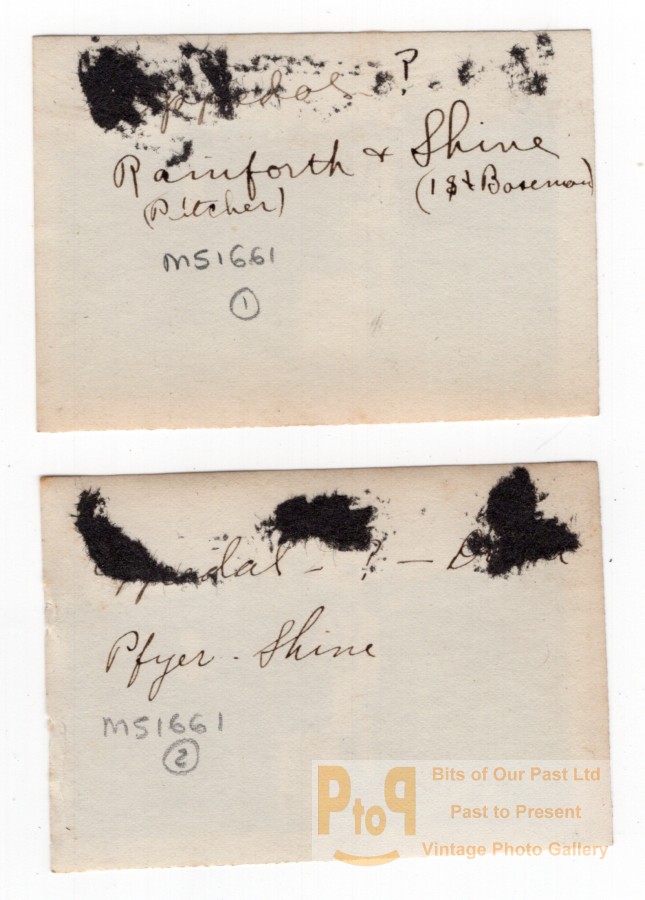 ?
Rainforth + Shine
(Pitcher) (1st Baseman)
M51661
1
- ? -
Pfyer - Shine
M51661
2
PtoP
Bits of Our Past Ltd
Past to Present
Vintage Photo Gallery